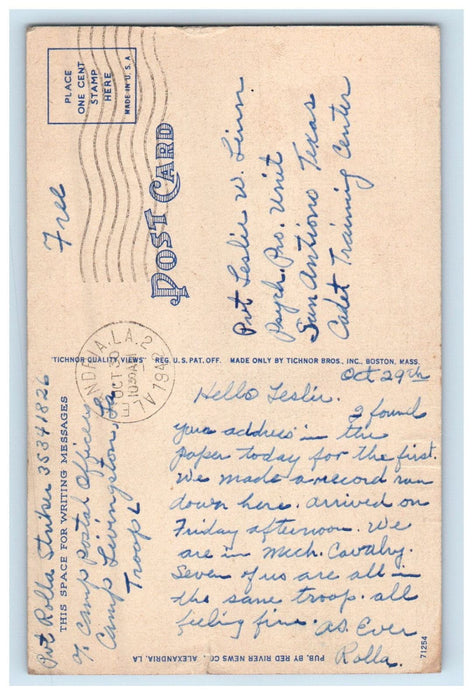 PLACE
ONE CENT
STAMP
HERE
MADE IN U.S.A.
Free
POST CARD
Pvt Leslie W. Linn.
Psych. Pro. Unit
San Antiono Texas
Cadet Training Center
"TICHNOR QUALITY VIEWS" REG. U.S. PAT. OFF. MADE ONLY BY TICHNOR BROS., INC., BOSTON, MASS.
OCT 30
1030AM
194
LA. 2
Pvt Rolla Striker 35341826
% Camp Postal Officer
Camp Livingston, La
Troop L
THIS SPACE FOR WRITING MESSAGES
Oct 29th
Hello Leslie.
I found
your address in the
paper today for the first.
We made a record run
down here. arrived on
Friday afternoon. We
are in Mech. Cavalry.
Seven of us are all in
the same troop. all
feeling fine.
As Ever
Rolla.
PUB. BY RED RIVER NEWS CO., ALEXANDRIA, LA
71254